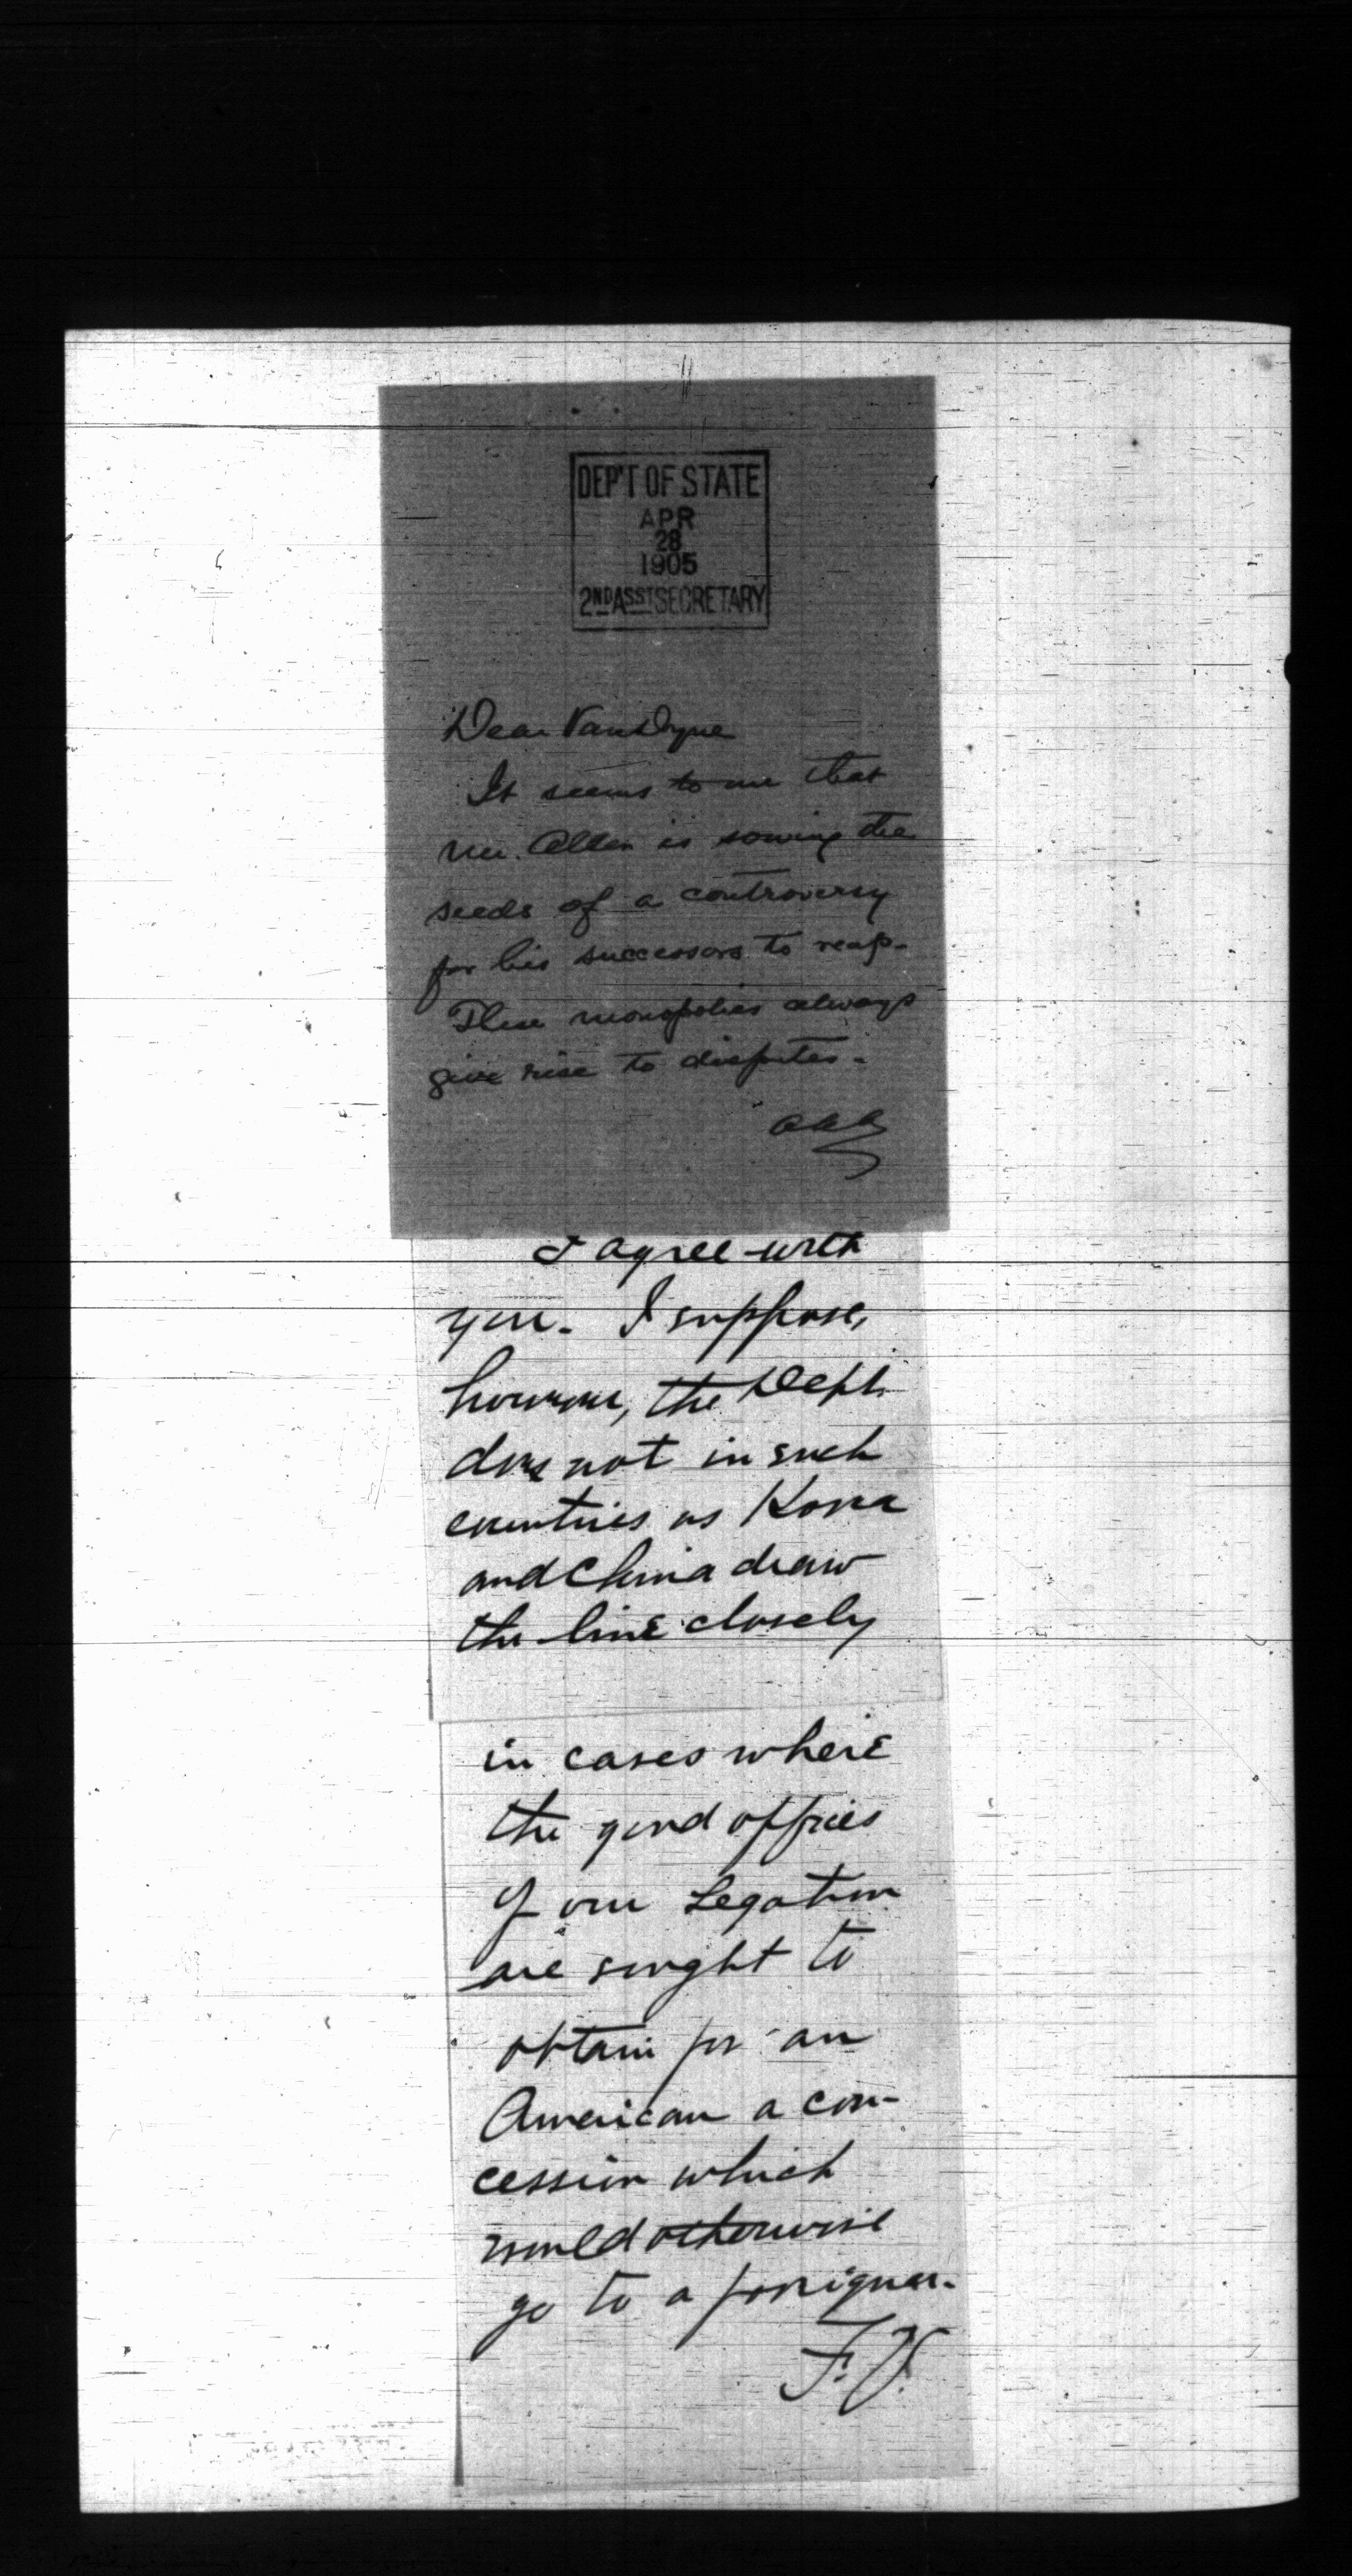 DEP'T OF STATE
APR
28
1905
2ND ASST SECRETARY
Dear Van Dyne
It seems to me that
Mr. Allen is sowing the
seeds of a controversy
for his successors to reap.
These monopolies always
give rise to disputes.
AAA
I agree with
you. I suppose,
however, the Dept.
does not in such
countries as Korea
and China draw
the line closely
in cases where
the good offices
of our Legation
are sought to
obtain for an
American a con-
cession which
would otherwise
go to a foreigner.
F.V.